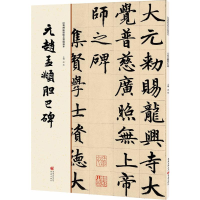 大元勑賜龍興寺
覺普慈廣照無上
師之碑
集賢學士資德大
元趙孟頫胆巴碑